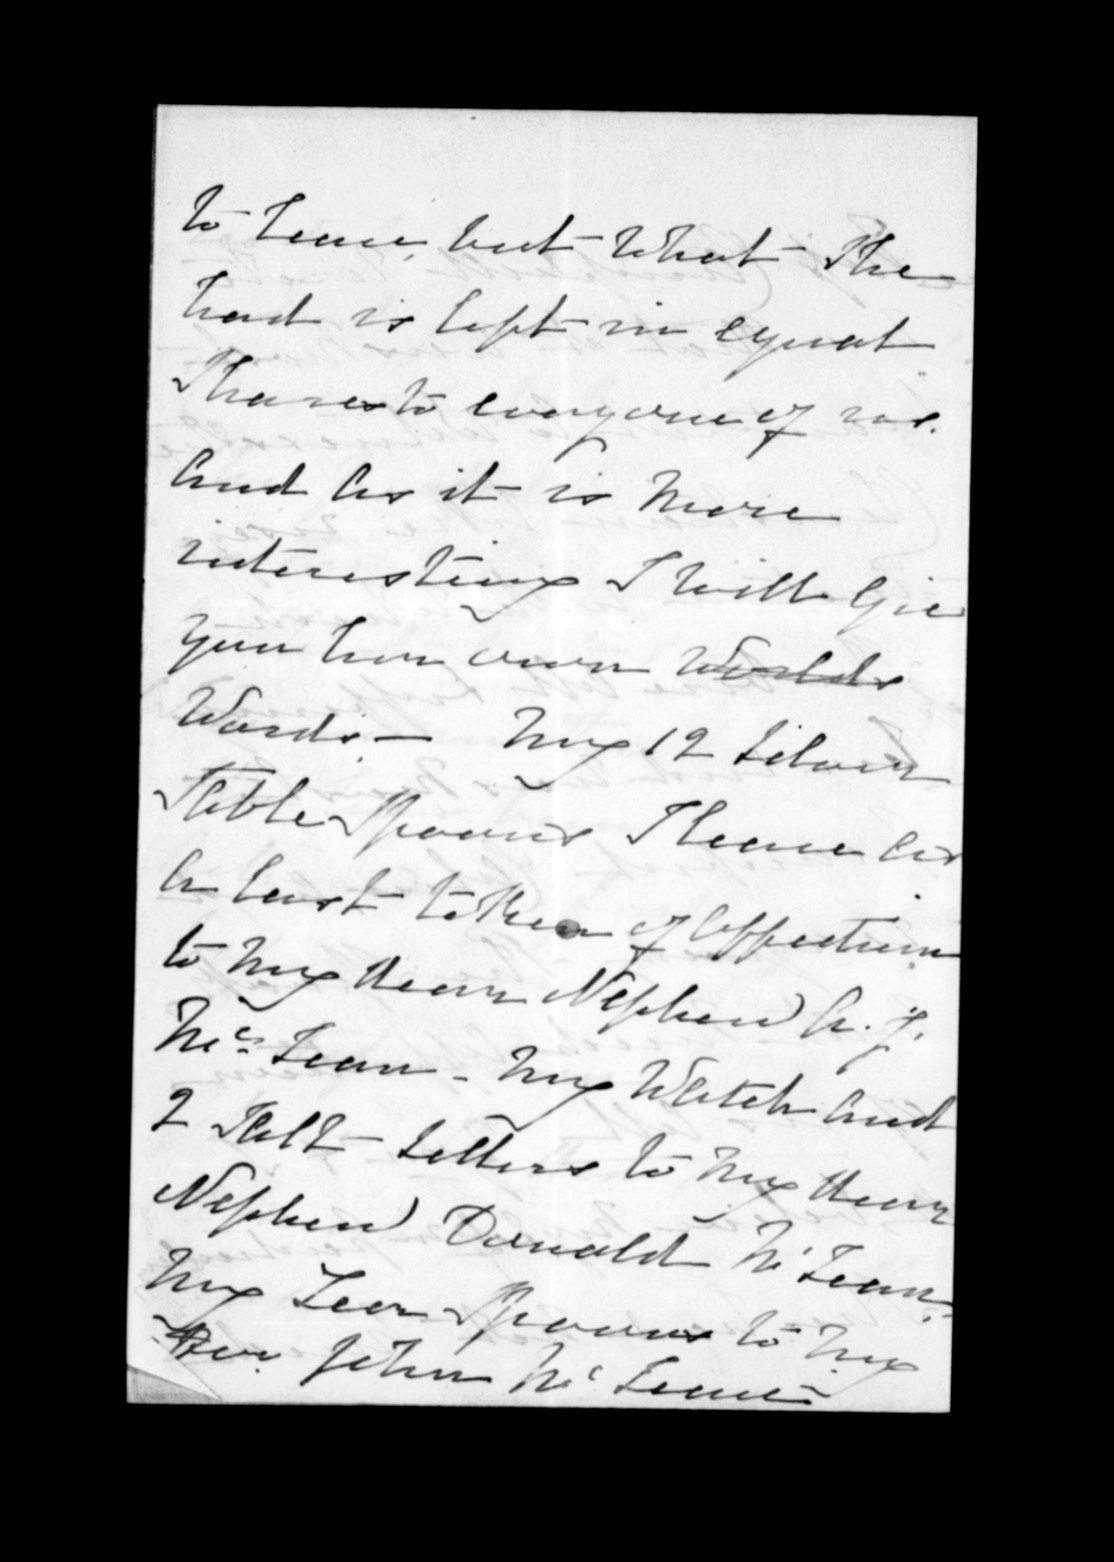 to leave, but what She
had is left in equal
Shares to everyone of us.
And as it is more
interesting I will Give
you her own worlds
Words. — My 12 Silver
Table Spoons I leave as
a last token of affection
to my dear Nephew A. J.
McLean - My Watch and
2 Salt Sellers to my dear
Nephew Donald McLean.
My Tea Spoons to my
Nev. John McLean